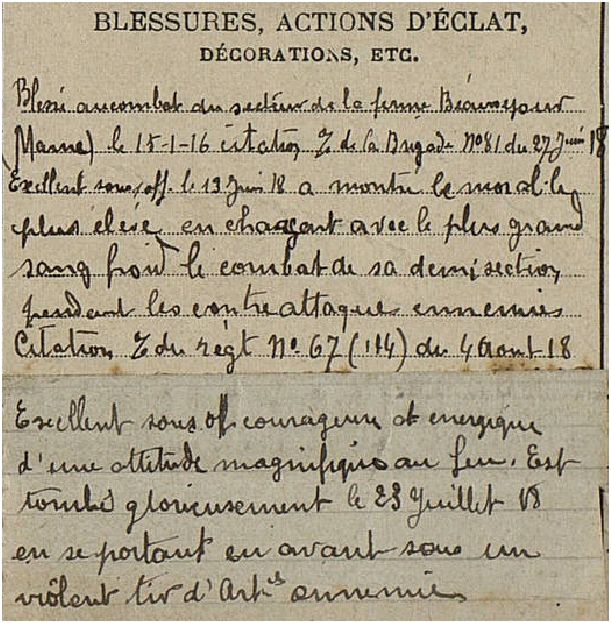 BLESSURES, ACTIONS D'ÉCLAT,
DÉCORATIONS, ETC.
Blessé au combat du secteur de la ferme Beauséjour
Marne) le 15-1-16 citation de la Brigade N° 81 du 27 Juin 18
Excellent sous off. le 13 Juin 18 a montré le moral le
plus élevé en engageant avec le plus grand
sang froid le combat de sa demi section
pendant les contre attaques ennemies
Citation du régt N° 67 (114) du 4 Aout 18
Excellent sous off courageux et energique
d'une attitude magnifique au feu. Est
tombé glorieusement le 23 Juillet 18
en se portant en avant sous un
violent tir d'Artie ennemie